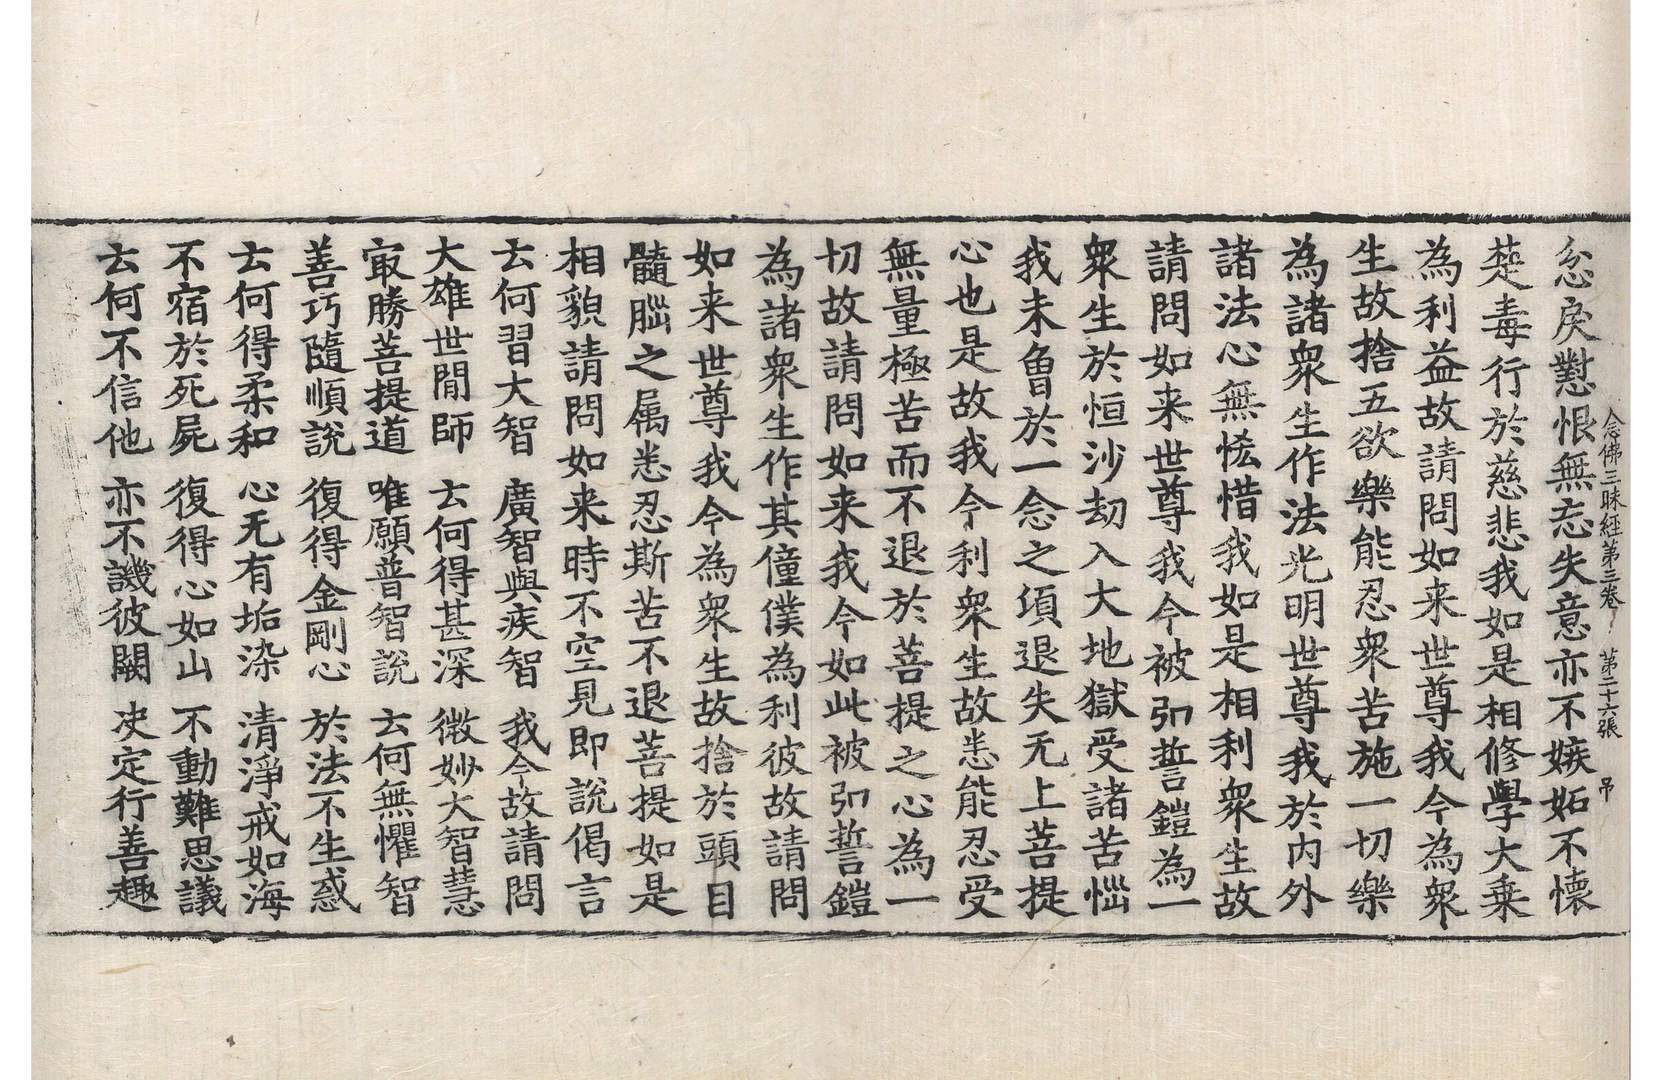 念佛三昧經第三卷 第二十六張 弔
忿戾懟恨無忘失意亦不嫉妬不懷
楚毒行於慈悲我如是相修學大乗
為利益故請問如来世尊我今為衆
生故捨五欲樂能忍衆苦施一切樂
為諸衆生作法光明世尊我於内外
諸法心無恡惜我如是相利衆生故
請問如来世尊我今被弘誓鎧為一
衆生於恒沙劫入大地獄受諸苦惱
我未曾於一念之頃退失无上菩提
心也是故我今利衆生故悉能忍受
無量極苦而不退於菩提之心為一
切故請問如来我今如此被弘誓鎧
為諸衆生作其僮僕為利彼故請問
如来世尊我今為衆生故捨於頭目
髓腦之属悉忍斯苦不退菩提如是
相貌請問如来時不空見即說偈言
去何習大智 廣智與疾智 我今故請問
大雄世間師 去何得甚深 微妙大智慧
㝡勝菩提道 唯願普智說 去何無懼智
善巧隨順說 復得金剛心 於法不生惑
去何得柔和 心无有垢染 清淨戒如海
不宿於死屍 復得心如山 不動難思議
去何不信他 亦不譏彼闕 决定行善趣